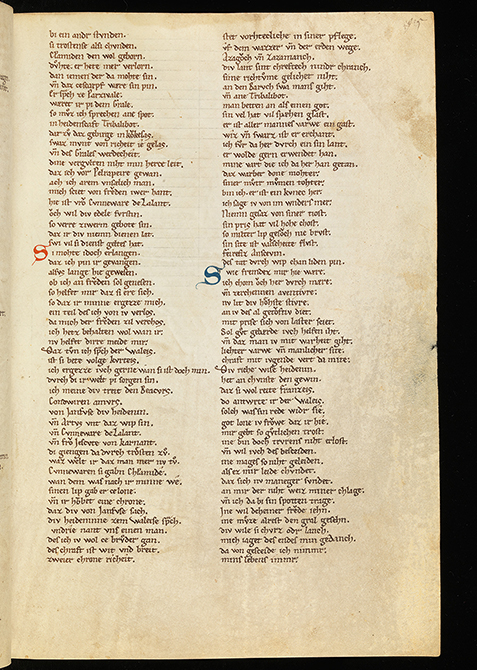 bi ein andr stvnden.
si trosten se alsi chvnden.
Clamiden der wol geborn.
dvhte. er hete mer verlorn.
dan iemen der da mohte sin.
vn̄ daz cescarpf ware sin pin.
Er spch ce Parzivale.
waret ir pi dem Grale.
so mvz ich sprechen ane spot.
in heidenscaft Tribalibot.
dar zv daz gebirge in kokesas.
swaz mvnt von richeit ie gelas.
vn̄ des Grales werdecheit.
dine vergvlten niht min herce leit.
daz ich vor Pelrapeire gewan.
ach ich arem vnsælich man.
mich sceit von frevden iwer hant.
hie ist vrov Cvnneware de Lalant.
och wil div edele fvrstin.
so verre ziwerm gebote sin.
daz ir div niemen dienen lat.
swi vil si dienst geltes hat.
Si mohte doch erlangen.
daz ich pin ir gevangen.
alsvs lange hie gewesen.
ob ich an frevden sol genesen.
so helfet mir daz si ere sich.
so daz ir minne ergetze mich.
ein teil des ich von iv verlos.
da mich der frevden zil verchos.
ich hetz behalten wol wan ir.
nv helfet dirre meide mir.
Daz tvn ich spch der Waleis.
ist si bete volge kvrteis.
ich ergetze ivch gerne wan si ist doch min.
dvrch di ir welt pi sorgen sin.
ich meine div treit den Beacvrs.
Condwiren amvrs.
von Janfvse div heidenin.
vn̄ Artvs vnt daz wip sin.
vn̄ Cvnneware de Lalant.
vn̄ frov Jescvte von karnant.
di giengen da dvrch trosten zv.
waz welt ir daz man mer nv tv.
Cvnnewaren si gabn Chlamide.
wan dem was nach ir minne we.
sinen lip gab er ce lone.
vn̄ ir hovbet eine chrone.
daz div von Janfvse sach.
div heideninne zem Waleise spch.
cvndrie nant vns einen man.
des ich iv wol ce brvder gan.
des chraft ist wit vnd breit.
zweier chrone richeit.
stet vorhtecliche in siner pflege.
vf dem wazzer vn̄ der erden wege.
Azagovch vn̄ Zazamanch.
div lant sint chreftech ninder chranch.
sine richtvme gelichet niht.
an den Baruch swa mans giht.
vn̄ ane Tribalibot.
man betten an als einen got.
sin vel hat vil spæhen glast.
er ist aller mannes varwe ein gast.
wiz vn̄ swarz ist er erchant.
ich fvr da her dvrch ein sin lant.
er wolde gern erwendet han.
mine vart die ich da her han getan.
daz warber done mohter.
siner mvter mvmen tohter.
bin ich. er ist ein kvnec her.
ich sage iv von im wnders mer.
Niemn gesaz von siner tiost.
sin pris hat vil hohe chost.
so milter lip gesoch nie brvst.
sin site ist valscheite flvst.
Feirefiz Anscevin.
des tat dvrch wip chan liden pin.
Swie fremdez mir hie ware.
ich chom och her dvrch mære.
vn̄ zerchennen aventivre.
nv lit div hohste stivre.
an iv des al getovftiv diet.
mit prise sich von laster sciet.
Sol gvt gebærde ivch helfen iht.
vn̄ daz man iv mit warheit giht.
liehter varwe vn̄ manlicher site.
chraft mit ivgende vert da mite.
Div riche wise heidenin.
het an chvnste den gewin.
daz si wol reite franzeis.
do antwrte ir der Waleis.
solch was sin rede wider sie.
got lone iv frowe daz ir hie.
mir gebt so gvtlichen trost.
ine bin doch trvrens niht erlost.
vn̄ wil ivch des bescheiden.
ine mages so niht geleiden.
als ez mir leide chvndet.
daz sich nv maneger svndet.
an mir der niht weiz miner chlage.
vn̄ ich da bi sin spotten trage.
Ine wil deheiner frevde iehn.
ine mvze alrest den gral gesehn.
div wile si chvrz oder lanch.
mich iaget des endes min gedanch.
da von gesceide ich nimmer.
mins lebens immer.